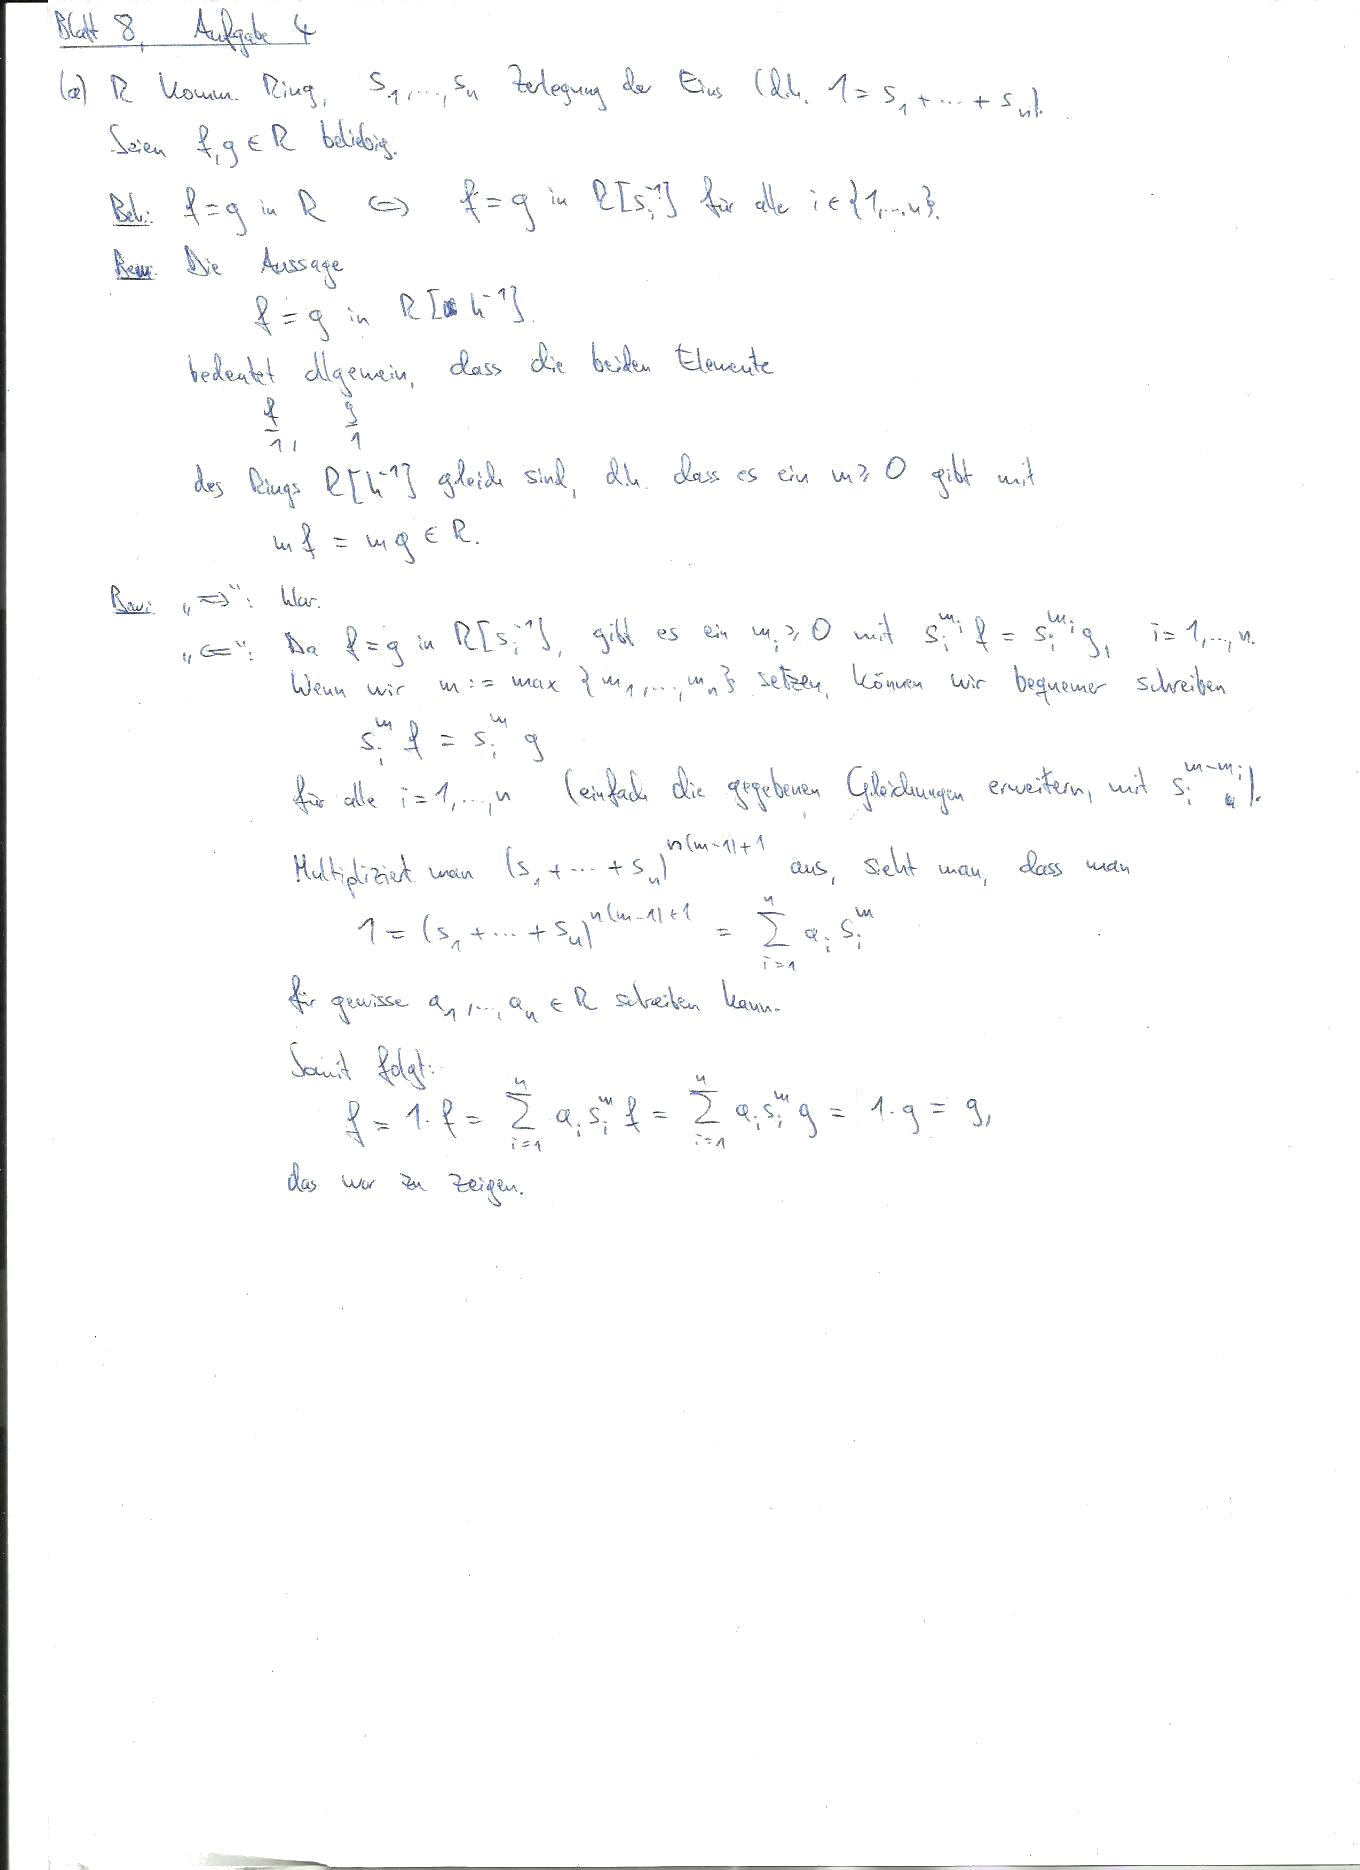 Blatt 8, Aufgabe 4
(a) R komm. Ring, s₁,...,sₙ Zerlegung der Eins (d.h. 1 = s₁ + ... + sₙ).
Seien f,g ∈ R beliebig.
Beh: f = g in R ⇔ f = g in R[sᵢ⁻¹] für alle i ∈ {1,...n}.
Bem: Die Aussage
f = g in R[h⁻¹].
bedeutet allgemein, dass die beiden Elemente
f/1, g/1
des Rings R[h⁻¹] gleich sind, d.h. dass es ein m ≥ 0 gibt mit
m f = m g ∈ R.
Bew: „⇒“: klar.
„⇐“: Da f = g in R[sᵢ⁻¹], gibt es ein mᵢ ≥ 0 mit sᵢ^{mᵢ} f = sᵢ^{mᵢ} g, i = 1,..,n.
Wenn wir m := max {m₁,...,mₙ} setzen, können wir bequemer schreiben
sᵢ^m f = sᵢ^m g
für alle i = 1,...,n (einfach die gegebenen Gleichungen erweitern, mit sᵢ^{m-mᵢ}).
Multipliziert man (s₁ + ... + sₙ)^{n(m-1)+1} aus, sieht man, dass man
1 = (s₁ + ... + sₙ)^{n(m-1)+1} = ∑_{i=1}^{n} aᵢ sᵢ^m
für gewisse a₁,...,aₙ ∈ R schreiben kann.
Somit folgt:
f = 1·f = ∑_{i=1}^{n} aᵢ sᵢ^m f = ∑_{i=1}^{n} aᵢ sᵢ^m g = 1·g = g,
das war zu zeigen.